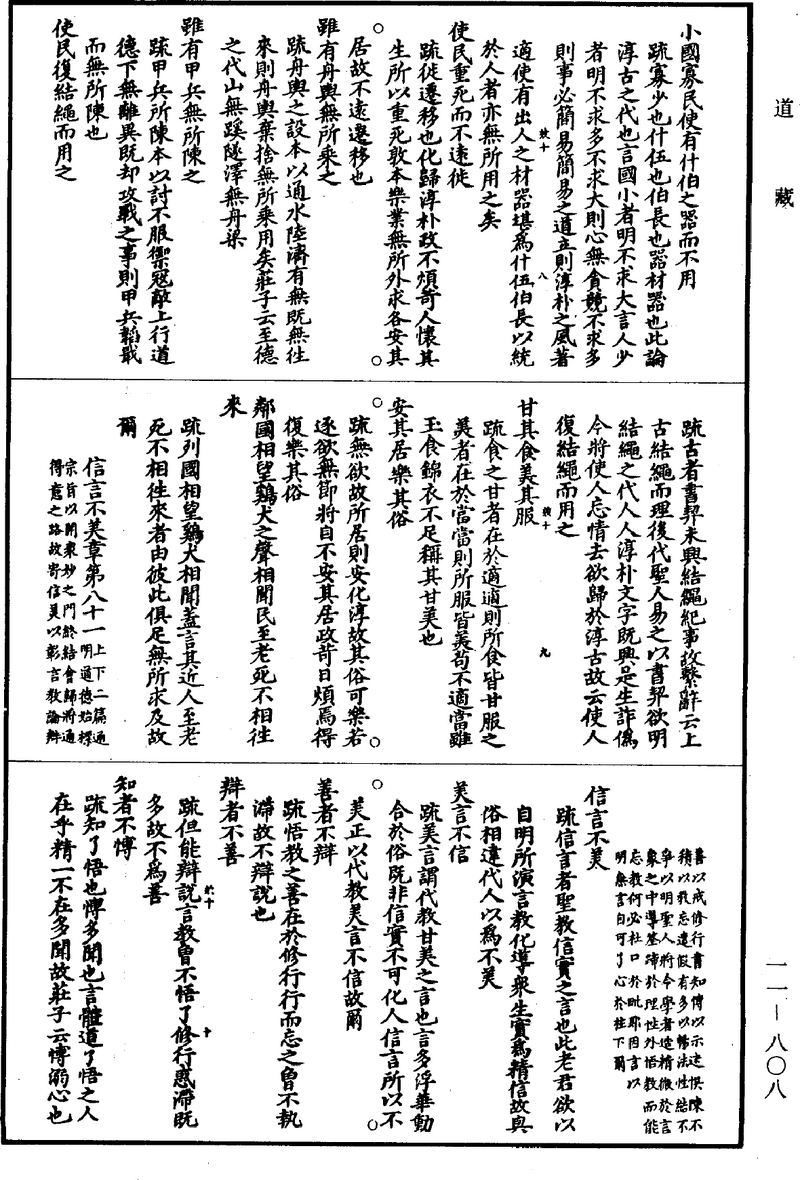 道藏
小國寡民使有什伯之器而不用
疏寡少也什伍也伯長也器材器也此論
淳古之代也言國小者明不求大言人少
者明不求多不求大則心無貪競不求多
則事必簡易簡易之道立則淳朴之風著
適使有出人之材器堪爲什伍伯長以統
於人者亦無所用之矣
使民重死而不遠徙
疏徙遷移也化歸淳朴政不煩苛人懷其
生所以重死敦本樂業無所外求各安其
居故不遠遷移也
雖有舟輿無所乘之
疏舟輿之設本以通水陸濟有無既無往
來則舟輿棄捨無所乘用矣莊子云至德
之代山無蹊隧澤無舟梁
雖有甲兵無所陳之
疏甲兵所陳本以討不服禦冦敵上行道
德下無離異既却攻戰之事則甲兵韜戢
而無所陳也
使民復結繩而用之
疏古者書契未興結繩紀事故繫辭云上
古結繩而理後代聖人易之以書契欲明
結繩之代人人淳朴文字既興是生詐僞
今將使人忘情去欲歸於淳古故云使人
復結繩而用之
甘其食美其服
疏食之甘者在於適適則所食皆甘服之
美者在於當當則所服皆美苟不適當雖
玉食錦衣不足稱其甘美也
安其居樂其俗
疏無欲故所居則安化淳故其俗可樂若
逐欲無節將自不安其居政苛日煩焉得
復樂其俗
鄰國相望鷄犬之聲相聞民至老死不相往
來
疏列國相望鷄犬相聞蓋言其近人至老
死不相往來者由彼此俱足無所求及故
爾
信言不美章第八十一
上下二篇通
明道德始標
宗旨以開衆妙之門終結會歸將通
得意之路故寄信美以彰言教論辯
善以戒修行書知愽以示迷悞陳不
積以教忘遣假有多以暢法性結不
爭以明聖人將令學者造精微於言
象之中導筌蹄於理性外悟教而能
忘教何必杜口於毗耶因言以
明無言自可了心於柱下爾
信言不美
疏信言者聖教信實之言也此老君欲以
自明所演言教化導衆生實爲精信故與
俗相違代人以爲不美
美言不信
疏美言謂代教甘美之言也言多浮華動
合於俗既非信實不可化人信言所以不
美正以代教美言不信故爾
善者不辯
疏悟教之善在於修行行而忘之曾不執
滯故不辯說也
辯者不善
疏但能辯說言教曾不悟了修行惑滯既
多故不爲善
知者不愽
疏知了悟也愽多聞也言體道了悟之人
在乎精一不在多聞故莊子云愽溺心也
一一—八〇八